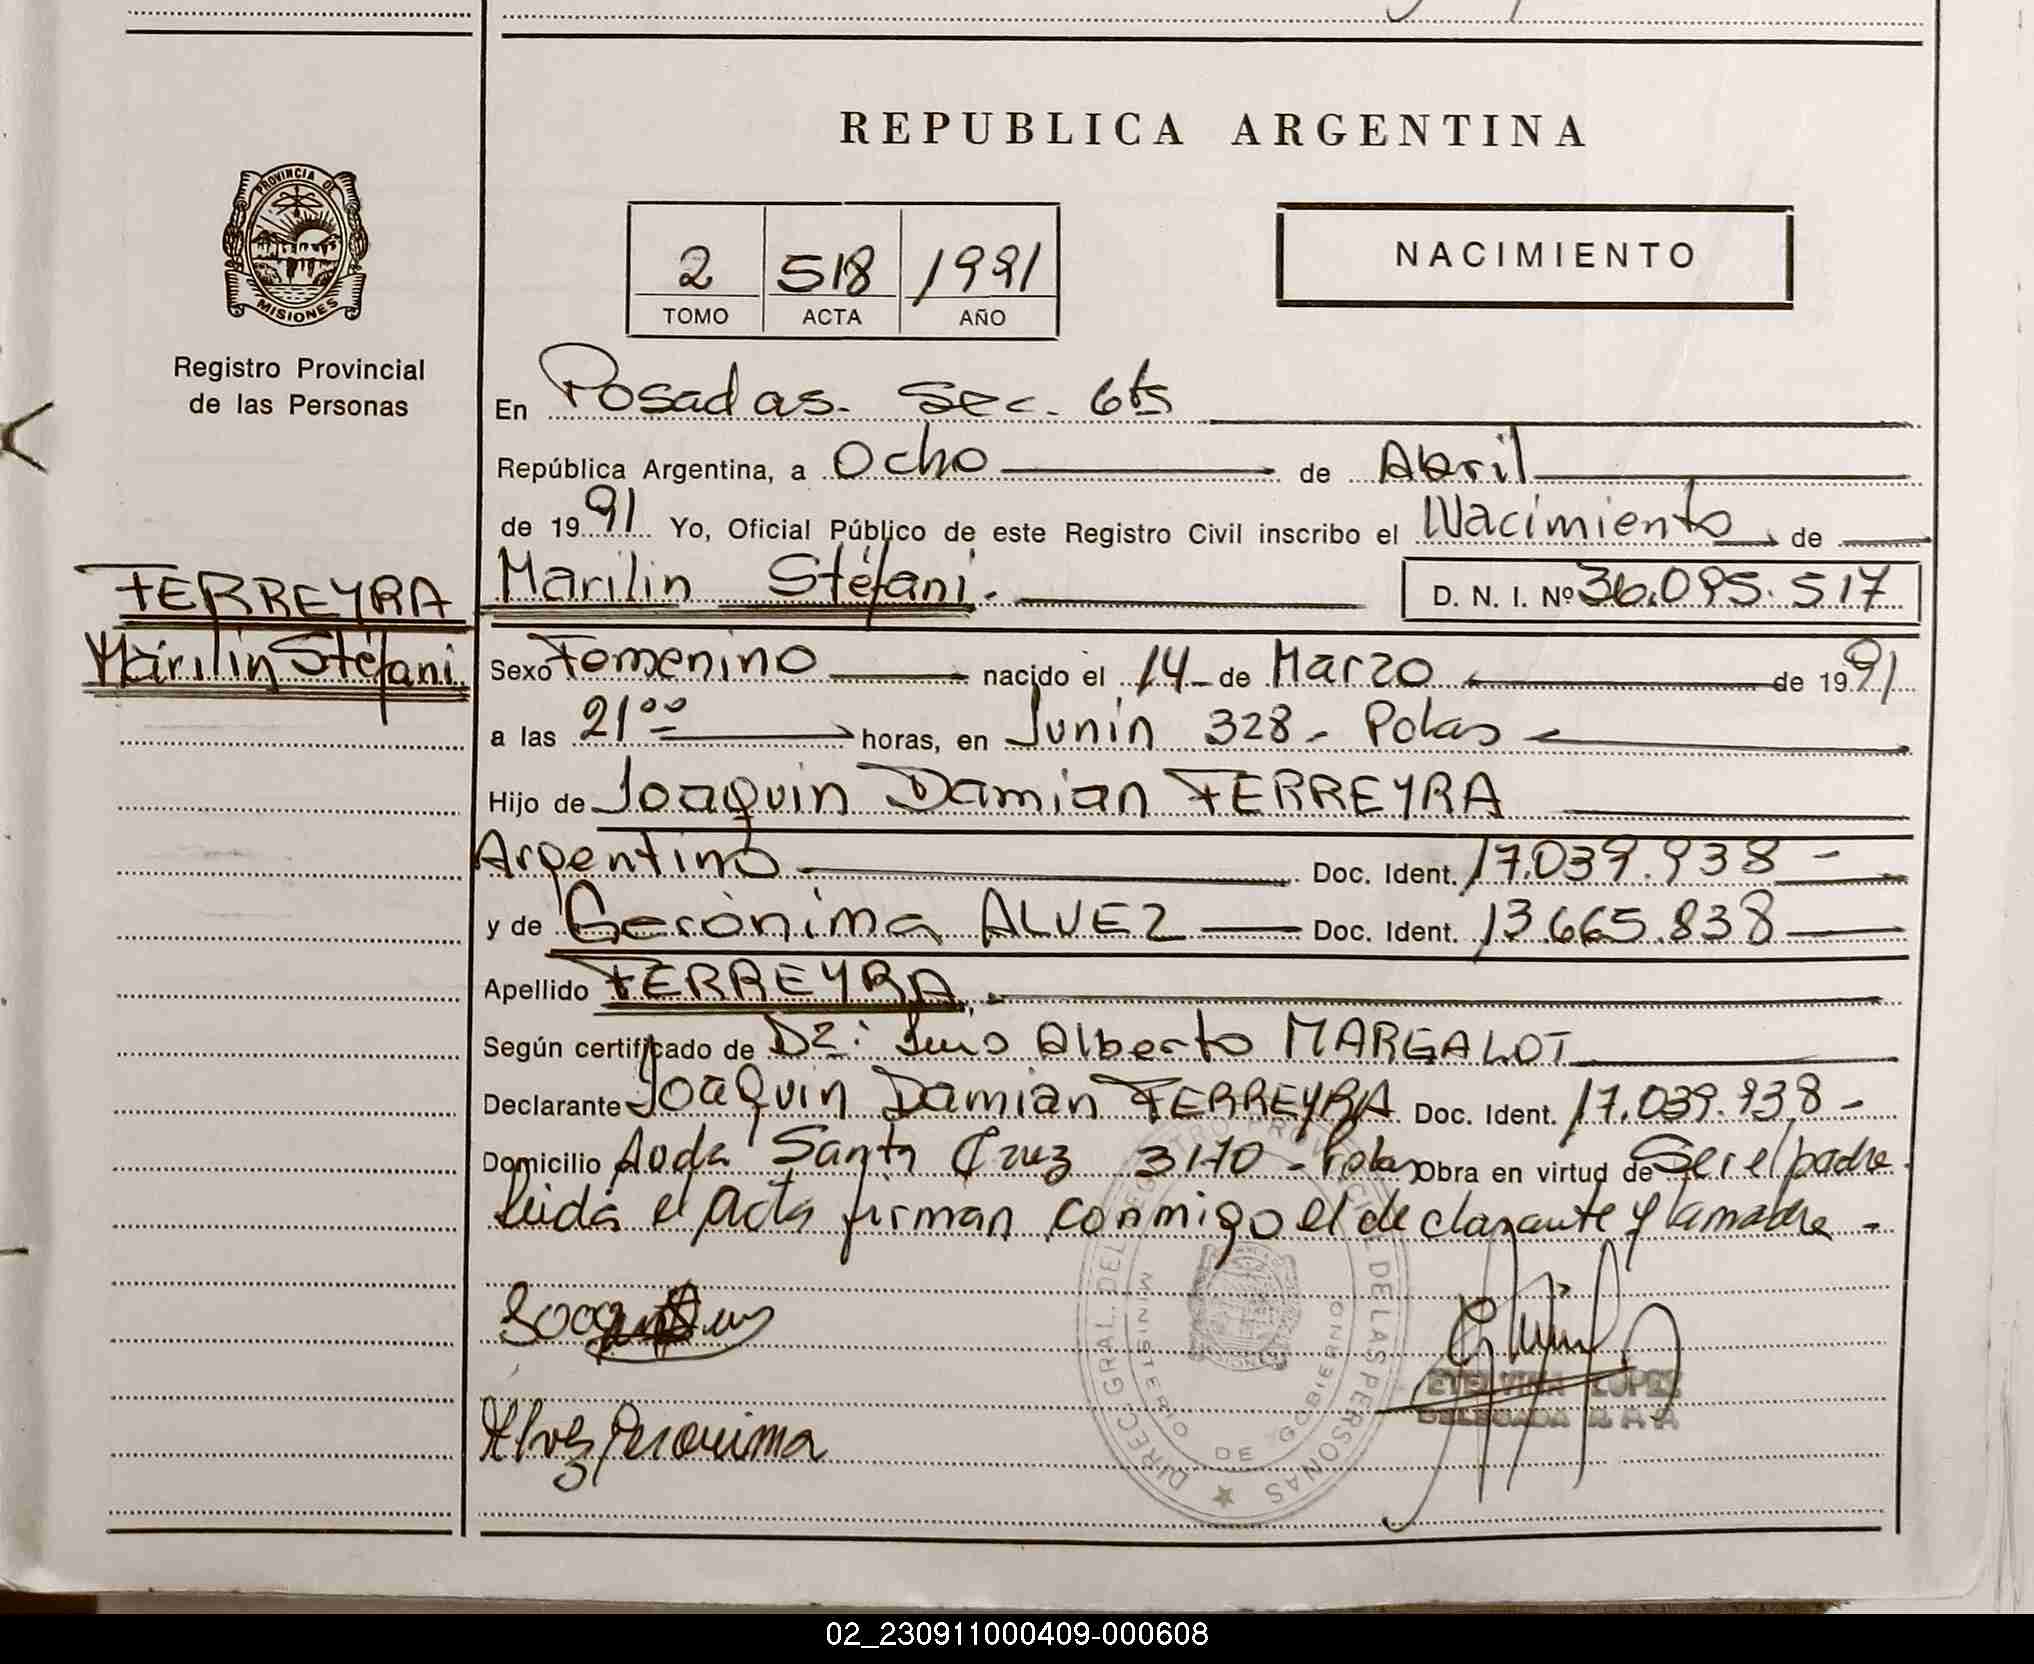 REPUBLICA ARGENTINA
PROVINCIA DE
MISIONES
Registro Provincial
de las Personas
2 518 1991
TOMO ACTA AÑO
NACIMIENTO
En Posadas. Sec. 6ta
República Argentina, a Ocho de Abril
de 1991 Yo, Oficial Público de este Registro Civil inscribo el Nacimiento de
FERREYRA
Marilin Stéfani
Marilin Stéfani. D. N. I. Nº 36.095.517
Sexo Femenino nacido el 14 de Marzo de 1991
a las 21ºº horas, en Junín 328 - Pdas
Hijo de Joaquin Damian FERREYRA
Argentino Doc. Ident. 17.039.938 -
y de Gerónima ALVEZ Doc. Ident. 13.665.838
Apellido FERREYRA.
Según certificado de Dr: Luis Alberto MARGALOT
Declarante Joaquin Damian FERREYRA Doc. Ident. 17.039.938 -
Domicilio Avda Santa Cruz 3170 - Pdas Obra en virtud de Ser el padre.
leida el acta firman conmigo el declarante y la madre -
Alvez Geronima
ETELVINA LOPEZ
DELEGADA
DIREC. GRAL. DEL REGISTRO PROVINCIAL DE LAS PERSONAS
MINISTERIO DE GOBIERNO
02_230911000409-000608